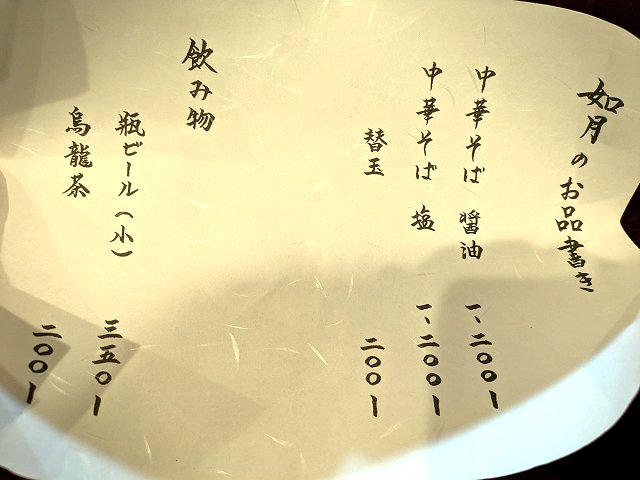 如月のお品書き
中華そば 醤油 一、二〇〇ー
中華そば 塩 一、二〇〇ー
替玉 二〇〇ー
飲み物
瓶ビール(小) 三五〇ー
烏龍茶 二〇〇ー